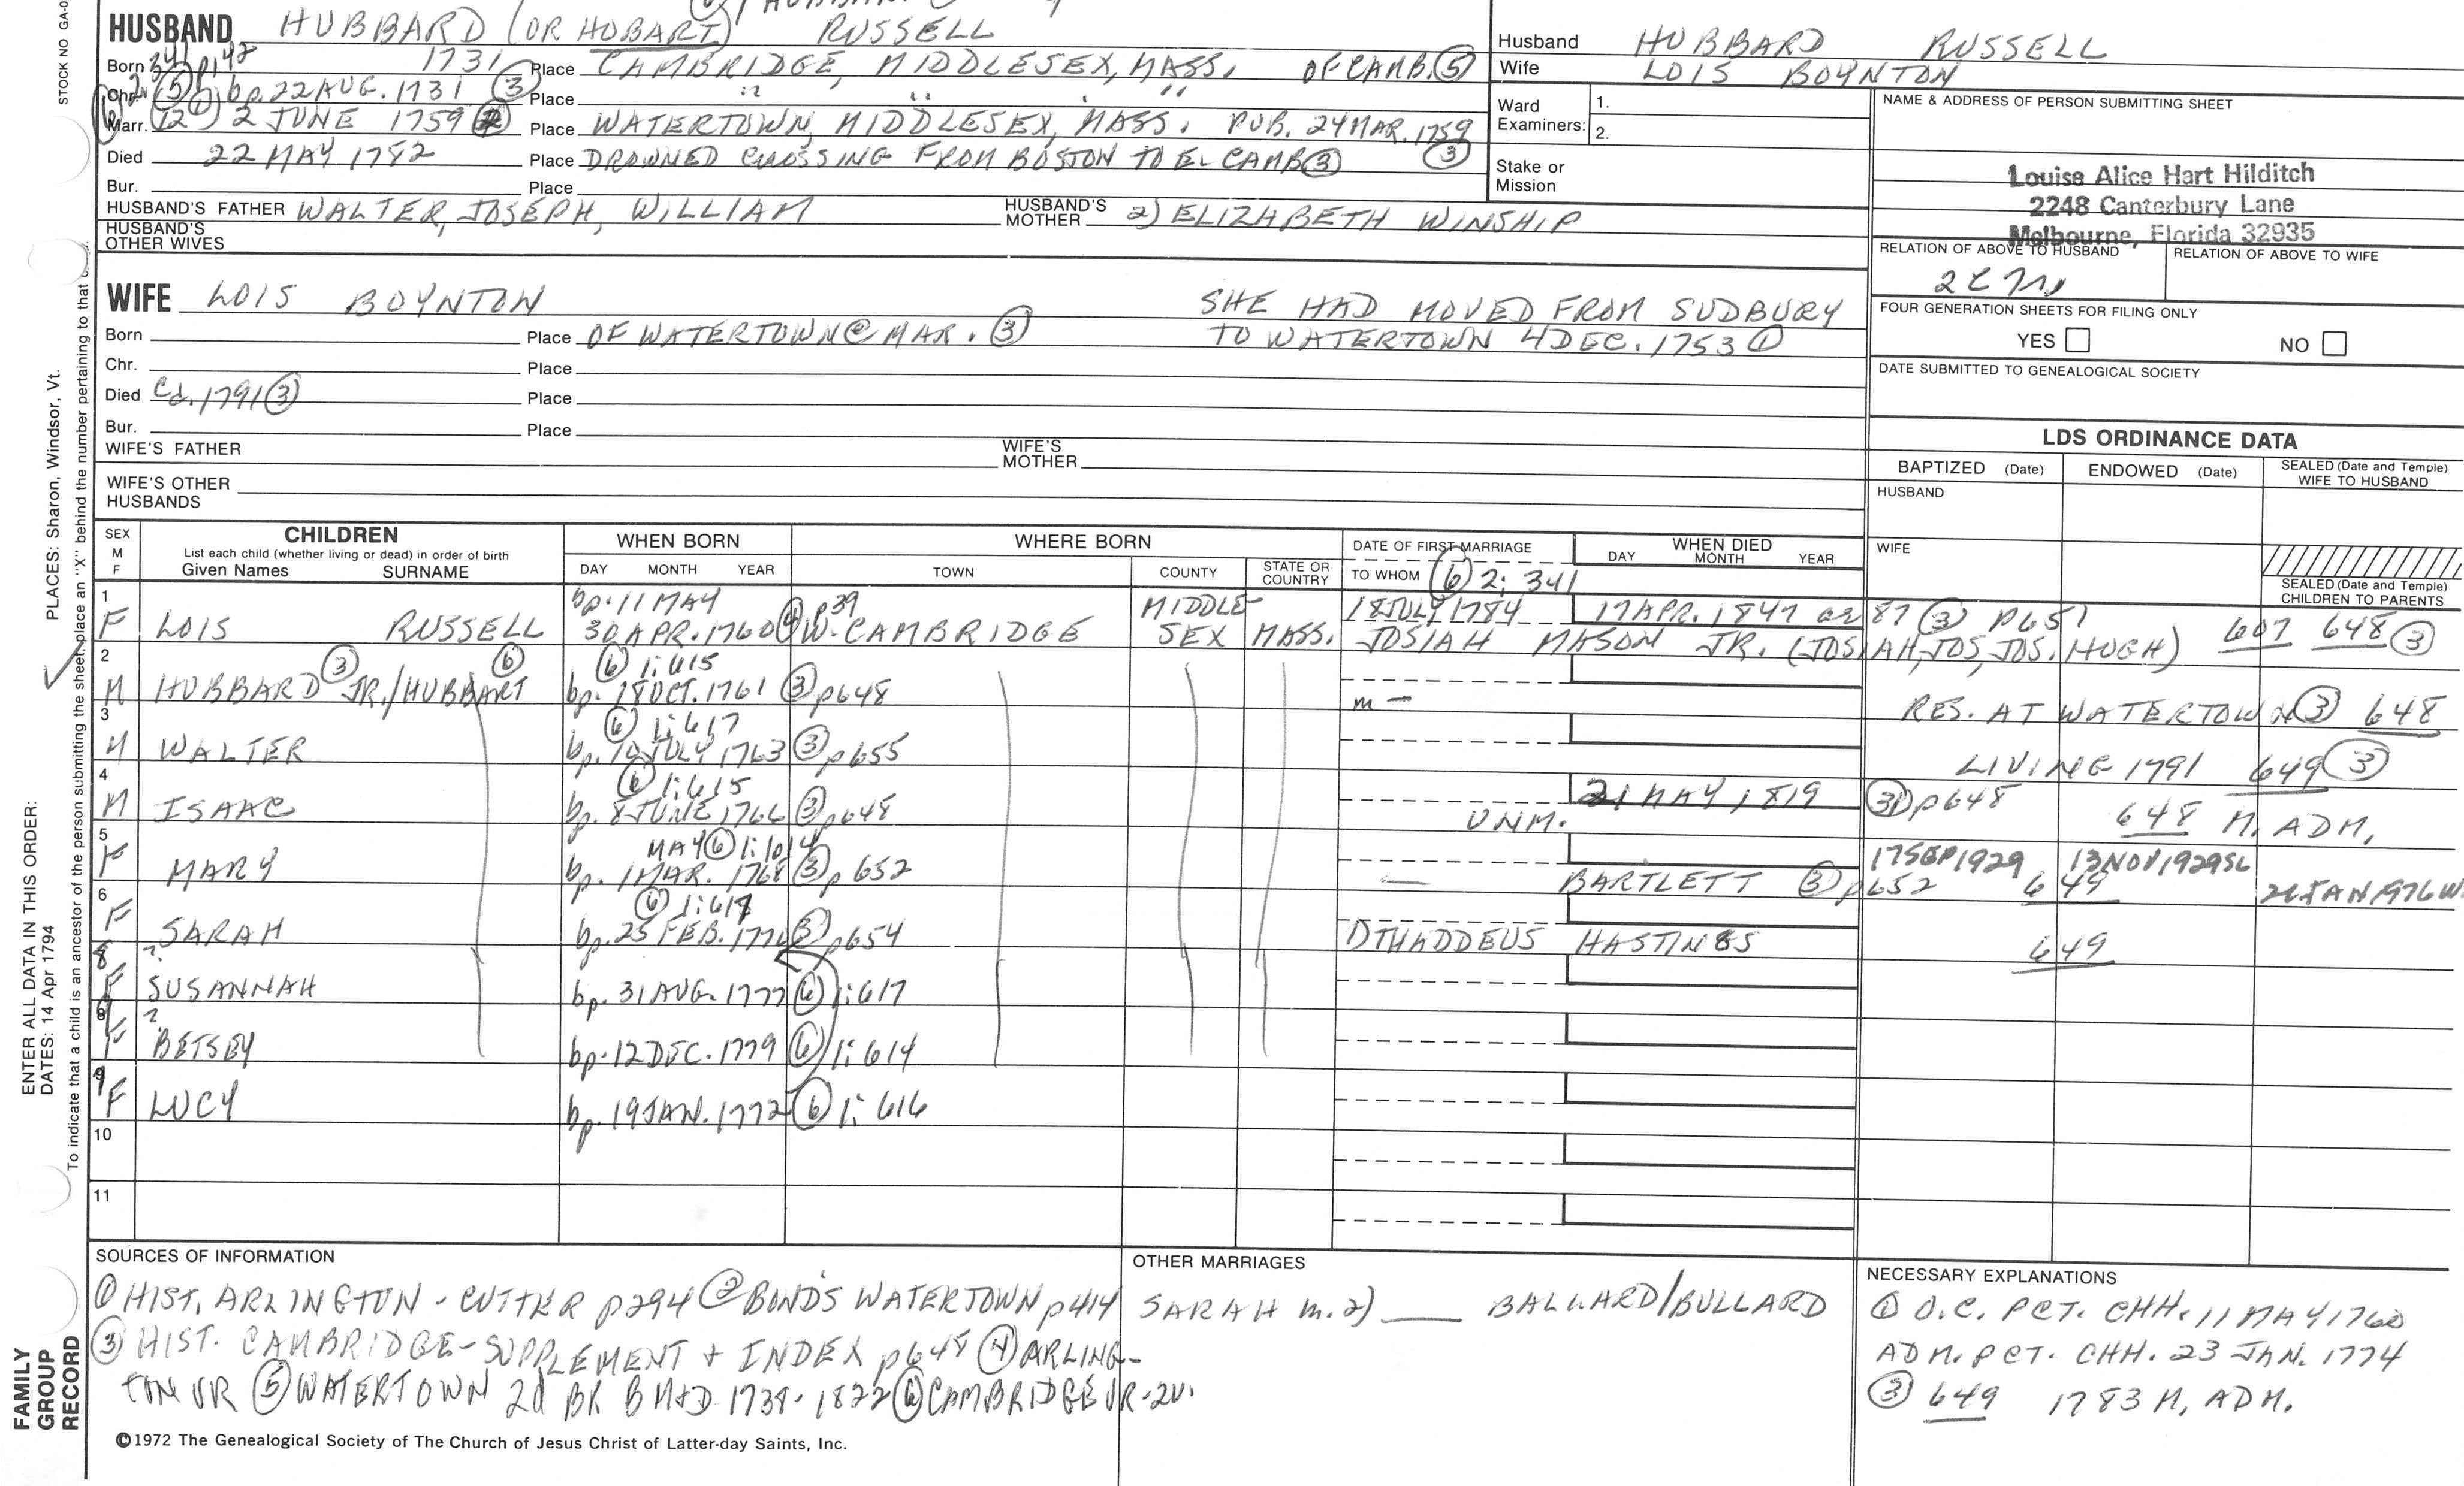 STOCK NO GA-0
HUSBAND HUBBARD (OR HOBART) RUSSELL
Born 1731 Place CAMBRIDGE, MIDDLESEX, MASS. OF CAMB. ⑤
Chr. ⑤ bp. 22 AUG. 1731 ③ Place " " " "
Marr. 2 JUNE 1759 Place WATERTOWN, MIDDLESEX, MASS. PUB. 24 MAR. 1759 ③
Died 22 MAY 1782 Place DROWNED CROSSING FROM BOSTON TO CAMB ③
Bur. Place
HUSBAND'S FATHER WALTER, JOSEPH, WILLIAM HUSBAND'S MOTHER 2) ELIZABETH WINSHIP
HUSBAND'S OTHER WIVES
WIFE LOIS BOYNTON SHE HAD MOVED FROM SUDBURY
Born Place OF WATERTOWN @ MAR. ③ TO WATERTOWN 4 DEC. 1753 ①
Chr. Place
Died Cd. 1791 ③ Place
Bur. Place
WIFE'S FATHER WIFE'S MOTHER
WIFE'S OTHER HUSBANDS
Husband HUBBARD RUSSELL
Wife LOIS BOYNTON
Ward Examiners: 1.
2.
Stake or Mission
NAME & ADDRESS OF PERSON SUBMITTING SHEET
Louise Alice Hart Hilditch
2248 Canterbury Lane
Melbourne, Florida 32935
RELATION OF ABOVE TO HUSBAND RELATION OF ABOVE TO WIFE
FOUR GENERATION SHEETS FOR FILING ONLY
YES NO
DATE SUBMITTED TO GENEALOGICAL SOCIETY
LDS ORDINANCE DATA
BAPTIZED (Date) ENDOWED (Date) SEALED (Date and Temple) WIFE TO HUSBAND
HUSBAND
WIFE
SEALED (Date and Temple) CHILDREN TO PARENTS
SEX M F CHILDREN WHEN BORN WHERE BORN DATE OF FIRST MARRIAGE WHEN DIED
List each child (whether living or dead) in order of birth
Given Names SURNAME DAY MONTH YEAR TOWN COUNTY STATE OR COUNTRY TO WHOM DAY MONTH YEAR
⑥ 2: 341
1 bp. 11 MAY ④ p39 MIDDLE- 18 JULY 1784 17 APR. 1847 ae 87 ③ p651
F LOIS RUSSELL 30 APR. 1760 W. CAMBRIDGE SEX MASS. JOSIAH MASON JR. (JOSIAH, JOS, JOS. HUGH) 607 648 ③
2 ③ ⑥ ⑥ 1: 615
M HUBBARD JR./HUBBART bp. 18 OCT. 1761 ③ p648 m — RES. AT WATERTOWN ③ 648
3 ⑥ 1: 617
M WALTER bp. JULY 1763 ③ p655 LIVING 1791 649 ③
4 ⑥ 1: 615 21 MAY 1819 ③ p648
M ISAAC bp. 8 JUNE 1766 ③ p648 UNM. 648 M. ADM.
5 MAY ⑥ 17 SEP 1929 13 NOV 1929 SL
F MARY bp. 1 MAR. 1768 ③ p652 — BARTLETT ③ p652 649 JAN 1976
6 ⑥ 1: 617
F SARAH bp. 25 FEB. ③ p654 THADDEUS HASTINGS 649
8 ?
F SUSANNAH bp. 31 AUG. 1777 ⑥ 1: 617
?
F BETSEY bp. 12 DEC. 1779 ⑥ 1: 614
9
F LUCY bp. 19 JAN. 1772 ⑥ 1: 616
10
11
SOURCES OF INFORMATION
① HIST. ARLINGTON - CUTTER p294 ② BOND'S WATERTOWN p414
③ HIST. CAMBRIDGE - SUPPLEMENT + INDEX p648 ④ ARLING-
TON VR ⑤ WATERTOWN 2d BK B M+D 1738-1822 ⑥ CAMBRIDGE VR-2V.
OTHER MARRIAGES
SARAH m. 2) ___ BALLARD/BULLARD
NECESSARY EXPLANATIONS
① O.C. PCT. CHH. 11 MAY 1760
ADM. PCT. CHH. 23 JAN. 1774
③ 649 1783 M. ADM.
©1972 The Genealogical Society of The Church of Jesus Christ of Latter-day Saints, Inc.
FAMILY GROUP RECORD
ENTER ALL DATA IN THIS ORDER:
DATES: 14 Apr 1794 PLACES: Sharon, Windsor, Vt.
To indicate that a child is an ancestor of the person submitting the sheet, place an "X" behind the number pertaining to that